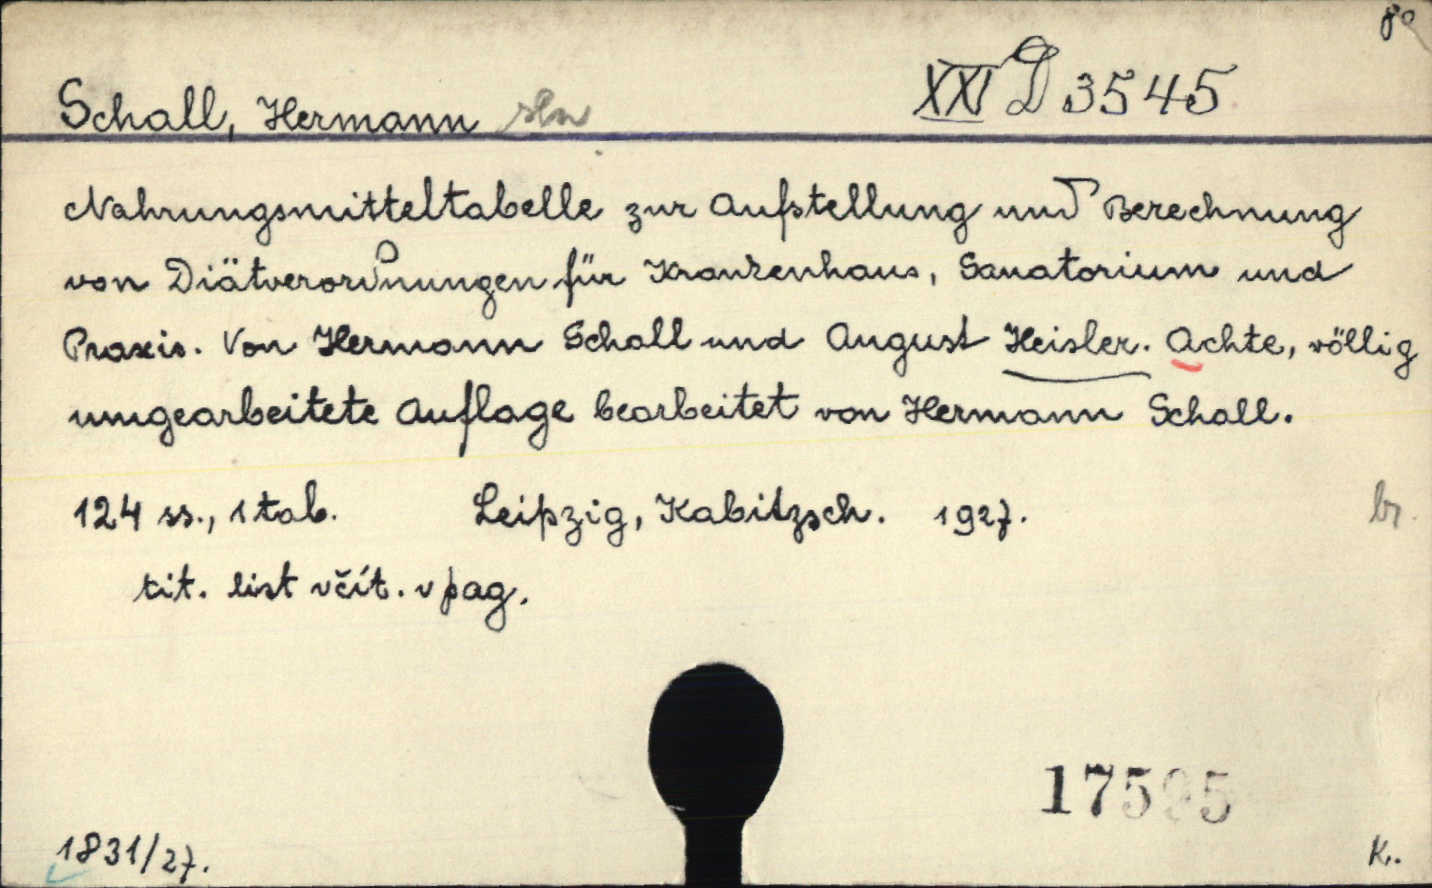 8°
Schall, Hermann XXI D 3545
Nahrungsmitteltabelle zur Aufstellung und Berechnung
von Diätverordnungen für Krankenhaus, Sanatorium und
Praxis. Von Hermann Schall und August Heisler. Achte, völlig
umgearbeitete Auflage bearbeitet von Hermann Schall.
124 ss., 1 tab. Leipzig, Kabitzsch. 1927. br.
tit. list včít. v pag.
1831/27. K.